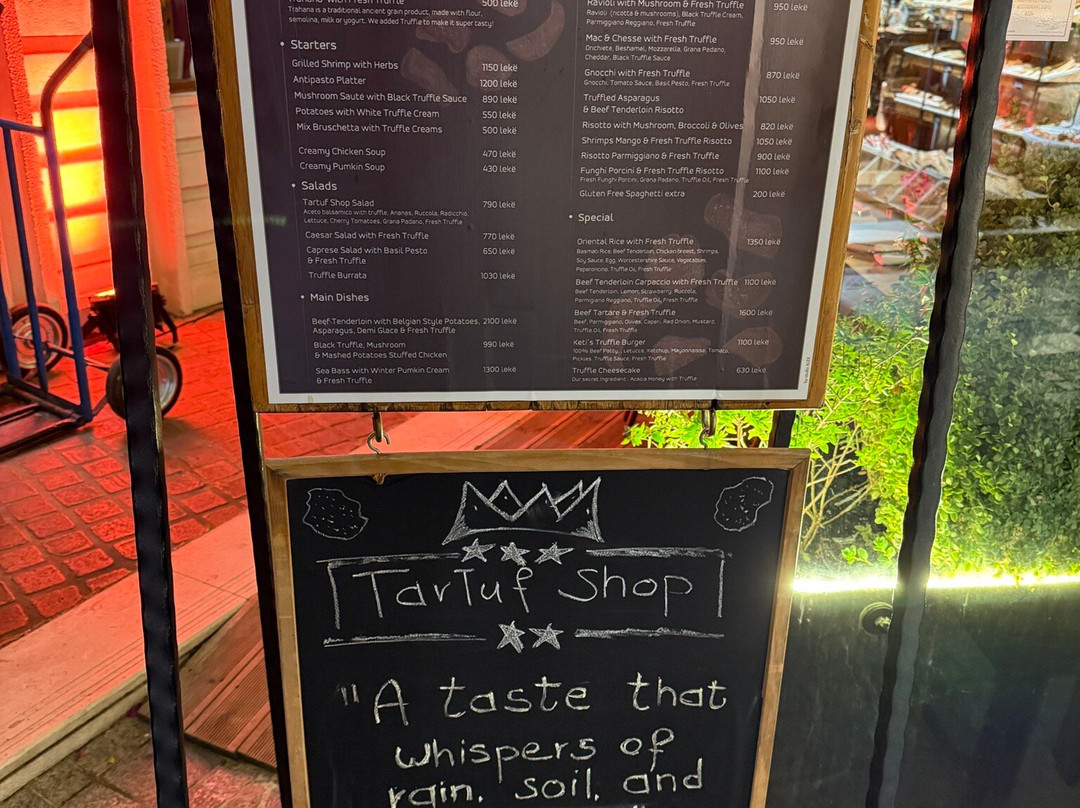 Trahana with Fresh Truffle 500 lekë
Trahana is a traditional ancient grain product, made with flour,
semolina, milk or yogurt. We added Truffle to make it super tasty!
• Starters
Grilled Shrimp with Herbs 1150 lekë
Antipasto Platter 1200 lekë
Mushroom Sauté with Black Truffle Sauce 890 lekë
Potatoes with White Truffle Cream 550 lekë
Mix Bruschetta with Truffle Creams 500 lekë
Creamy Chicken Soup 470 lekë
Creamy Pumkin Soup 430 lekë
• Salads
Tartuf Shop Salad 790 lekë
Aceto balsamico with truffle, Ananas, Ruccola, Radicchio,
Lettuce, Cherry Tomatoes, Grana Padano, Fresh Truffle
Caesar Salad with Fresh Truffle 770 lekë
Caprese Salad with Basil Pesto 650 lekë
& Fresh Truffle
Truffle Burrata 1030 lekë
• Main Dishes
Beef Tenderloin with Belgian Style Potatoes, 2100 lekë
Asparagus, Demi Glace & Fresh Truffle
Black Truffle, Mushroom 990 lekë
& Mashed Potatoes Stuffed Chicken
Sea Bass with Winter Pumkin Cream 1300 lekë
& Fresh Truffle
Ravioli with Mushroom & Fresh Truffle 950 lekë
Ravioli (ricotta & mushrooms), Black Truffle Cream,
Parmiggiano Reggiano, Fresh Truffle
Mac & Chesse with Fresh Truffle 950 lekë
Orichiete, Beshamel, Mozzarella, Grana Padano,
Cheddar, Black Truffle Sauce
Gnocchi with Fresh Truffle 870 lekë
Gnocchi, Tomaco Sauce, Basil Pesto, Fresh Truffle
Truffled Asparagus 1050 lekë
& Beef Tenderloin Risotto
Risotto with Mushroom, Broccoli & Olives 820 lekë
Shrimps Mango & Fresh Truffle Risotto 1050 lekë
Risotto Parmiggiano & Fresh Truffle 900 lekë
Funghi Porcini & Fresh Truffle Risotto 1100 lekë
Fresh Funghi Porcini, Grana Padano, Truffle Oil, Fresh Truffle
Gluten Free Spaghetti extra 200 lekë
• Special
Oriental Rice with Fresh Truffle 1350 lekë
Basmati Rice, Beef Tenderloin, Chicken breast, Shrimps,
Soy Sauce, Egg, Worcestershire Sauce, Vegetables,
Peperoncino, Truffle Oil, Fresh Truffle
Beef Tenderloin Carpaccio with Fresh Truffle 1100 lekë
Beef Tenderloin, Lemon, Strawberry, Ruccola,
Parmigiano Reggiano, Truffle Oil, Fresh Truffle
Beef Tartare & Fresh Truffle 1600 lekë
Beef, Parmiggiano, Olives, Caperi, Red Onion, Mustard,
Truffle Oil, Fresh Truffle
Keti's Truffle Burger 1100 lekë
100% Beef Patty, Letucce, Ketchup, Mayonnaisse, Tomato,
Pickles, Truffle Sauce, Fresh Truffle
Truffle Cheesecake 630 lekë
Our secret ingredient : Acacia Honey with Truffle
Tartuf Shop
"A taste that
whispers of
rain, soil, and